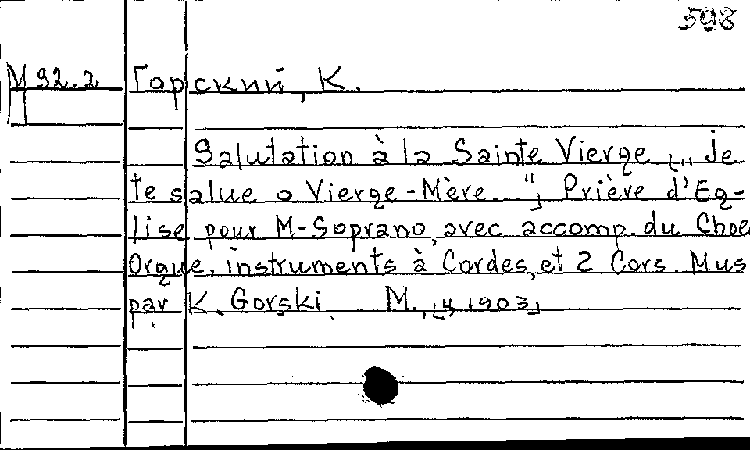 598
М 92.2 Горский, К.
Salutation à la Sainte Vierge [„Je
te salue o Vierge-Mère..."] Prière d'Eg-
lise pour M-Soprano, avec accomp. du Choe
Orgue, instruments à Cordes, et 2 Cors. Mus
par K. Gorski. M., [4, 1903]